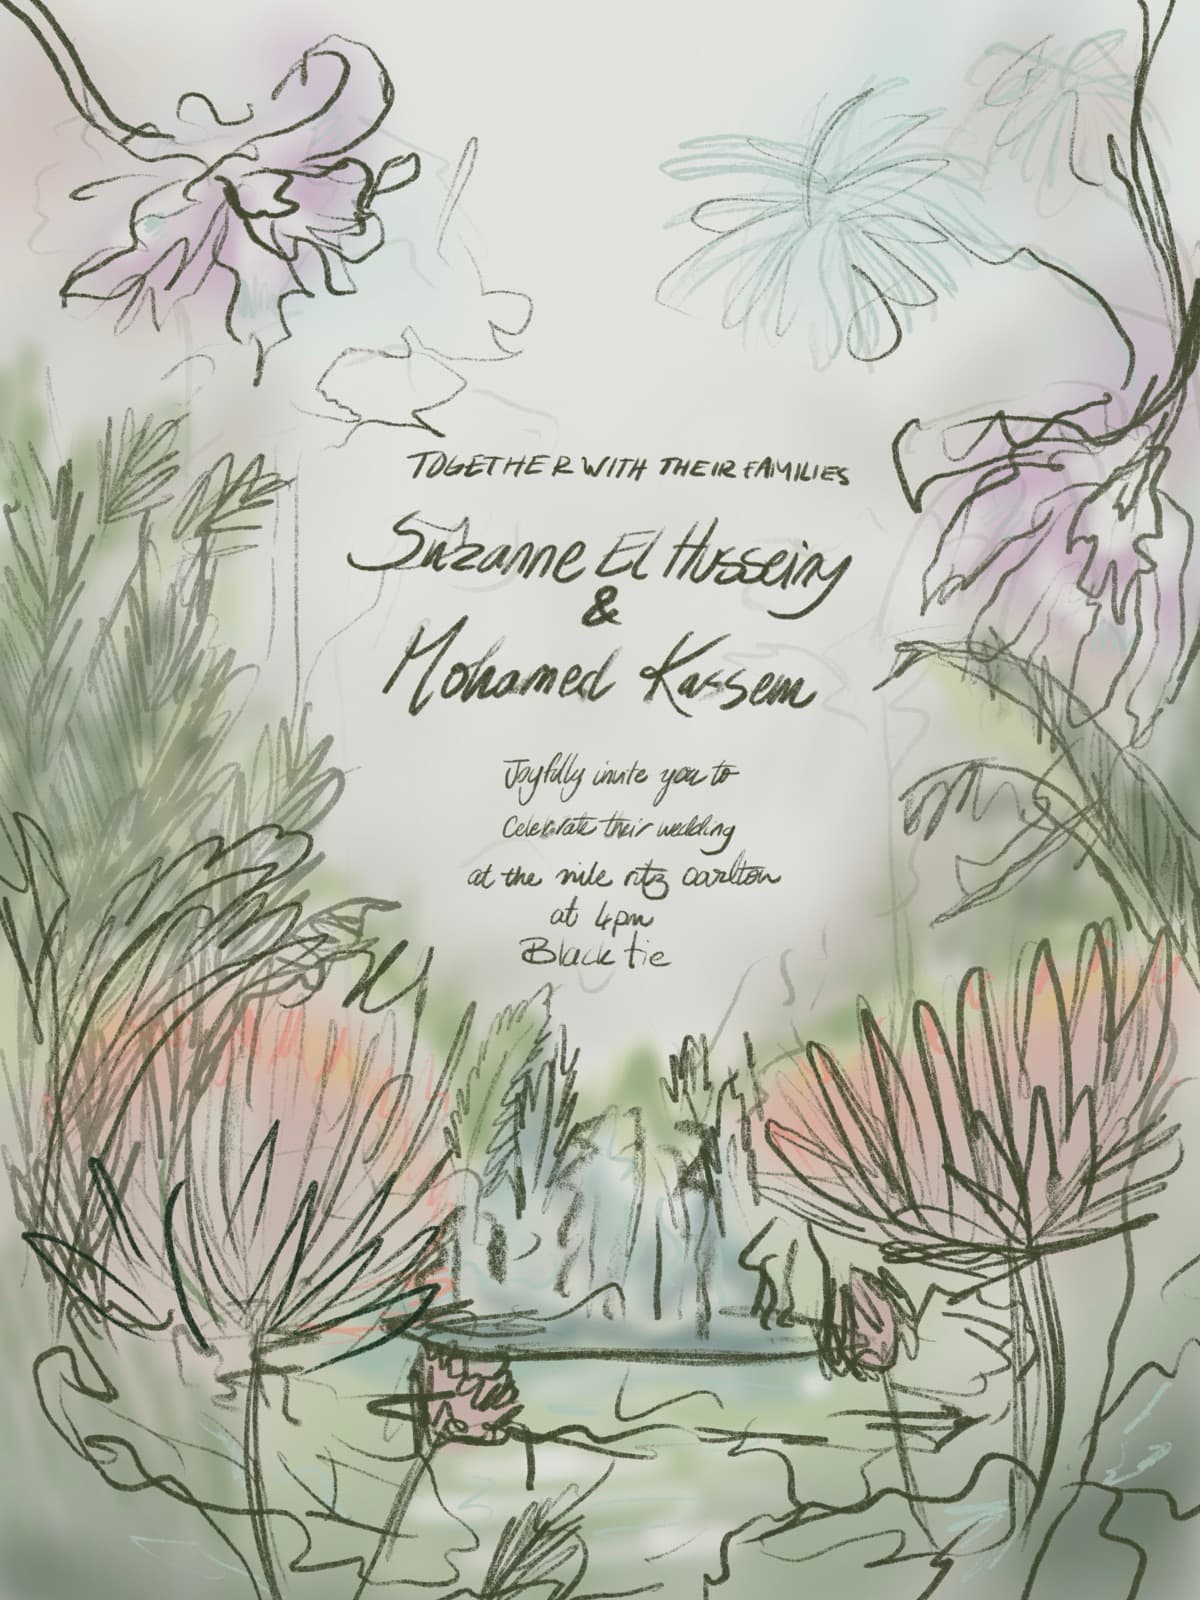 TOGETHER WITH THEIR FAMILIES
Suzanne El Husseiny
&
Mohamed Kassem
Joyfully invite you to
Celebrate their wedding
at the nile ritz carlton
at 4pm
Black tie